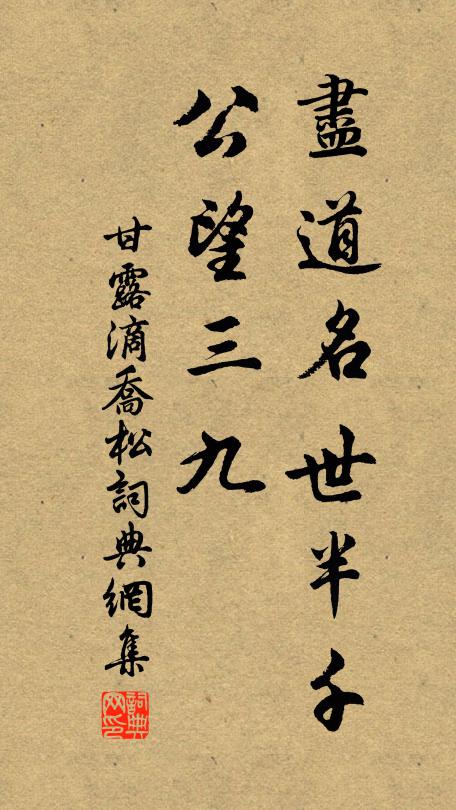 盡道名世半千
公望三九
甘露滴喬松詞典網集
詞典网印